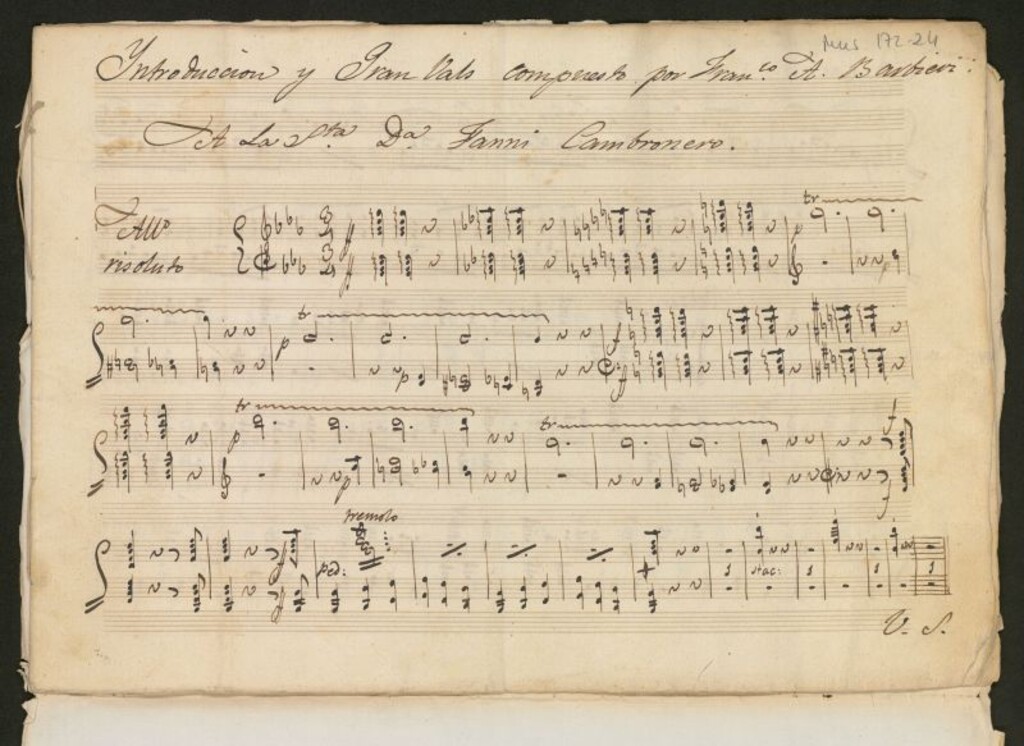 Mus 172-24
Introduccion y Gran Vals compuesto por Fran.co A. Barbieri.
A La S.ta D.a Fanni Cambronero.
All.o
risoluto
tr
tr
tr
tr
tremolo
ped:
1 stac: 1 1 1
V. S.